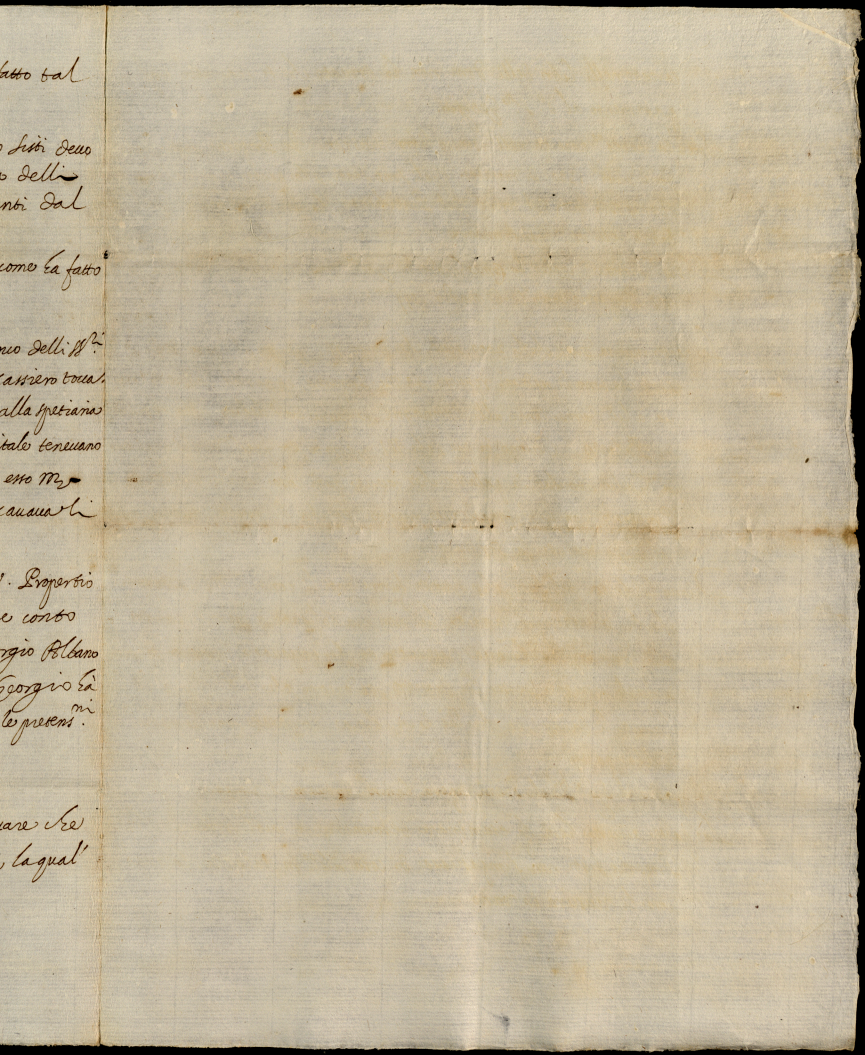 fatto tal
Sisti devo
delli
nti dal
come ha fatto
nco delli SS.ri
cassiero tocca
alla spetiaria
itale tenevano
esso
cavava li
Propertio
e conto
rgio Albano
Georgio hà
le pretens.ni
vare che
la qual'